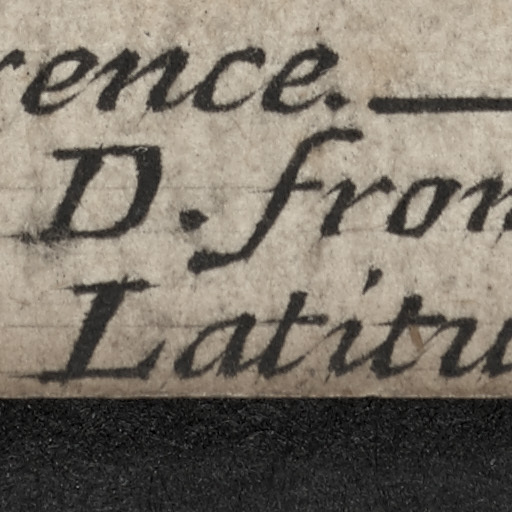 rence.
D. from
Latitu